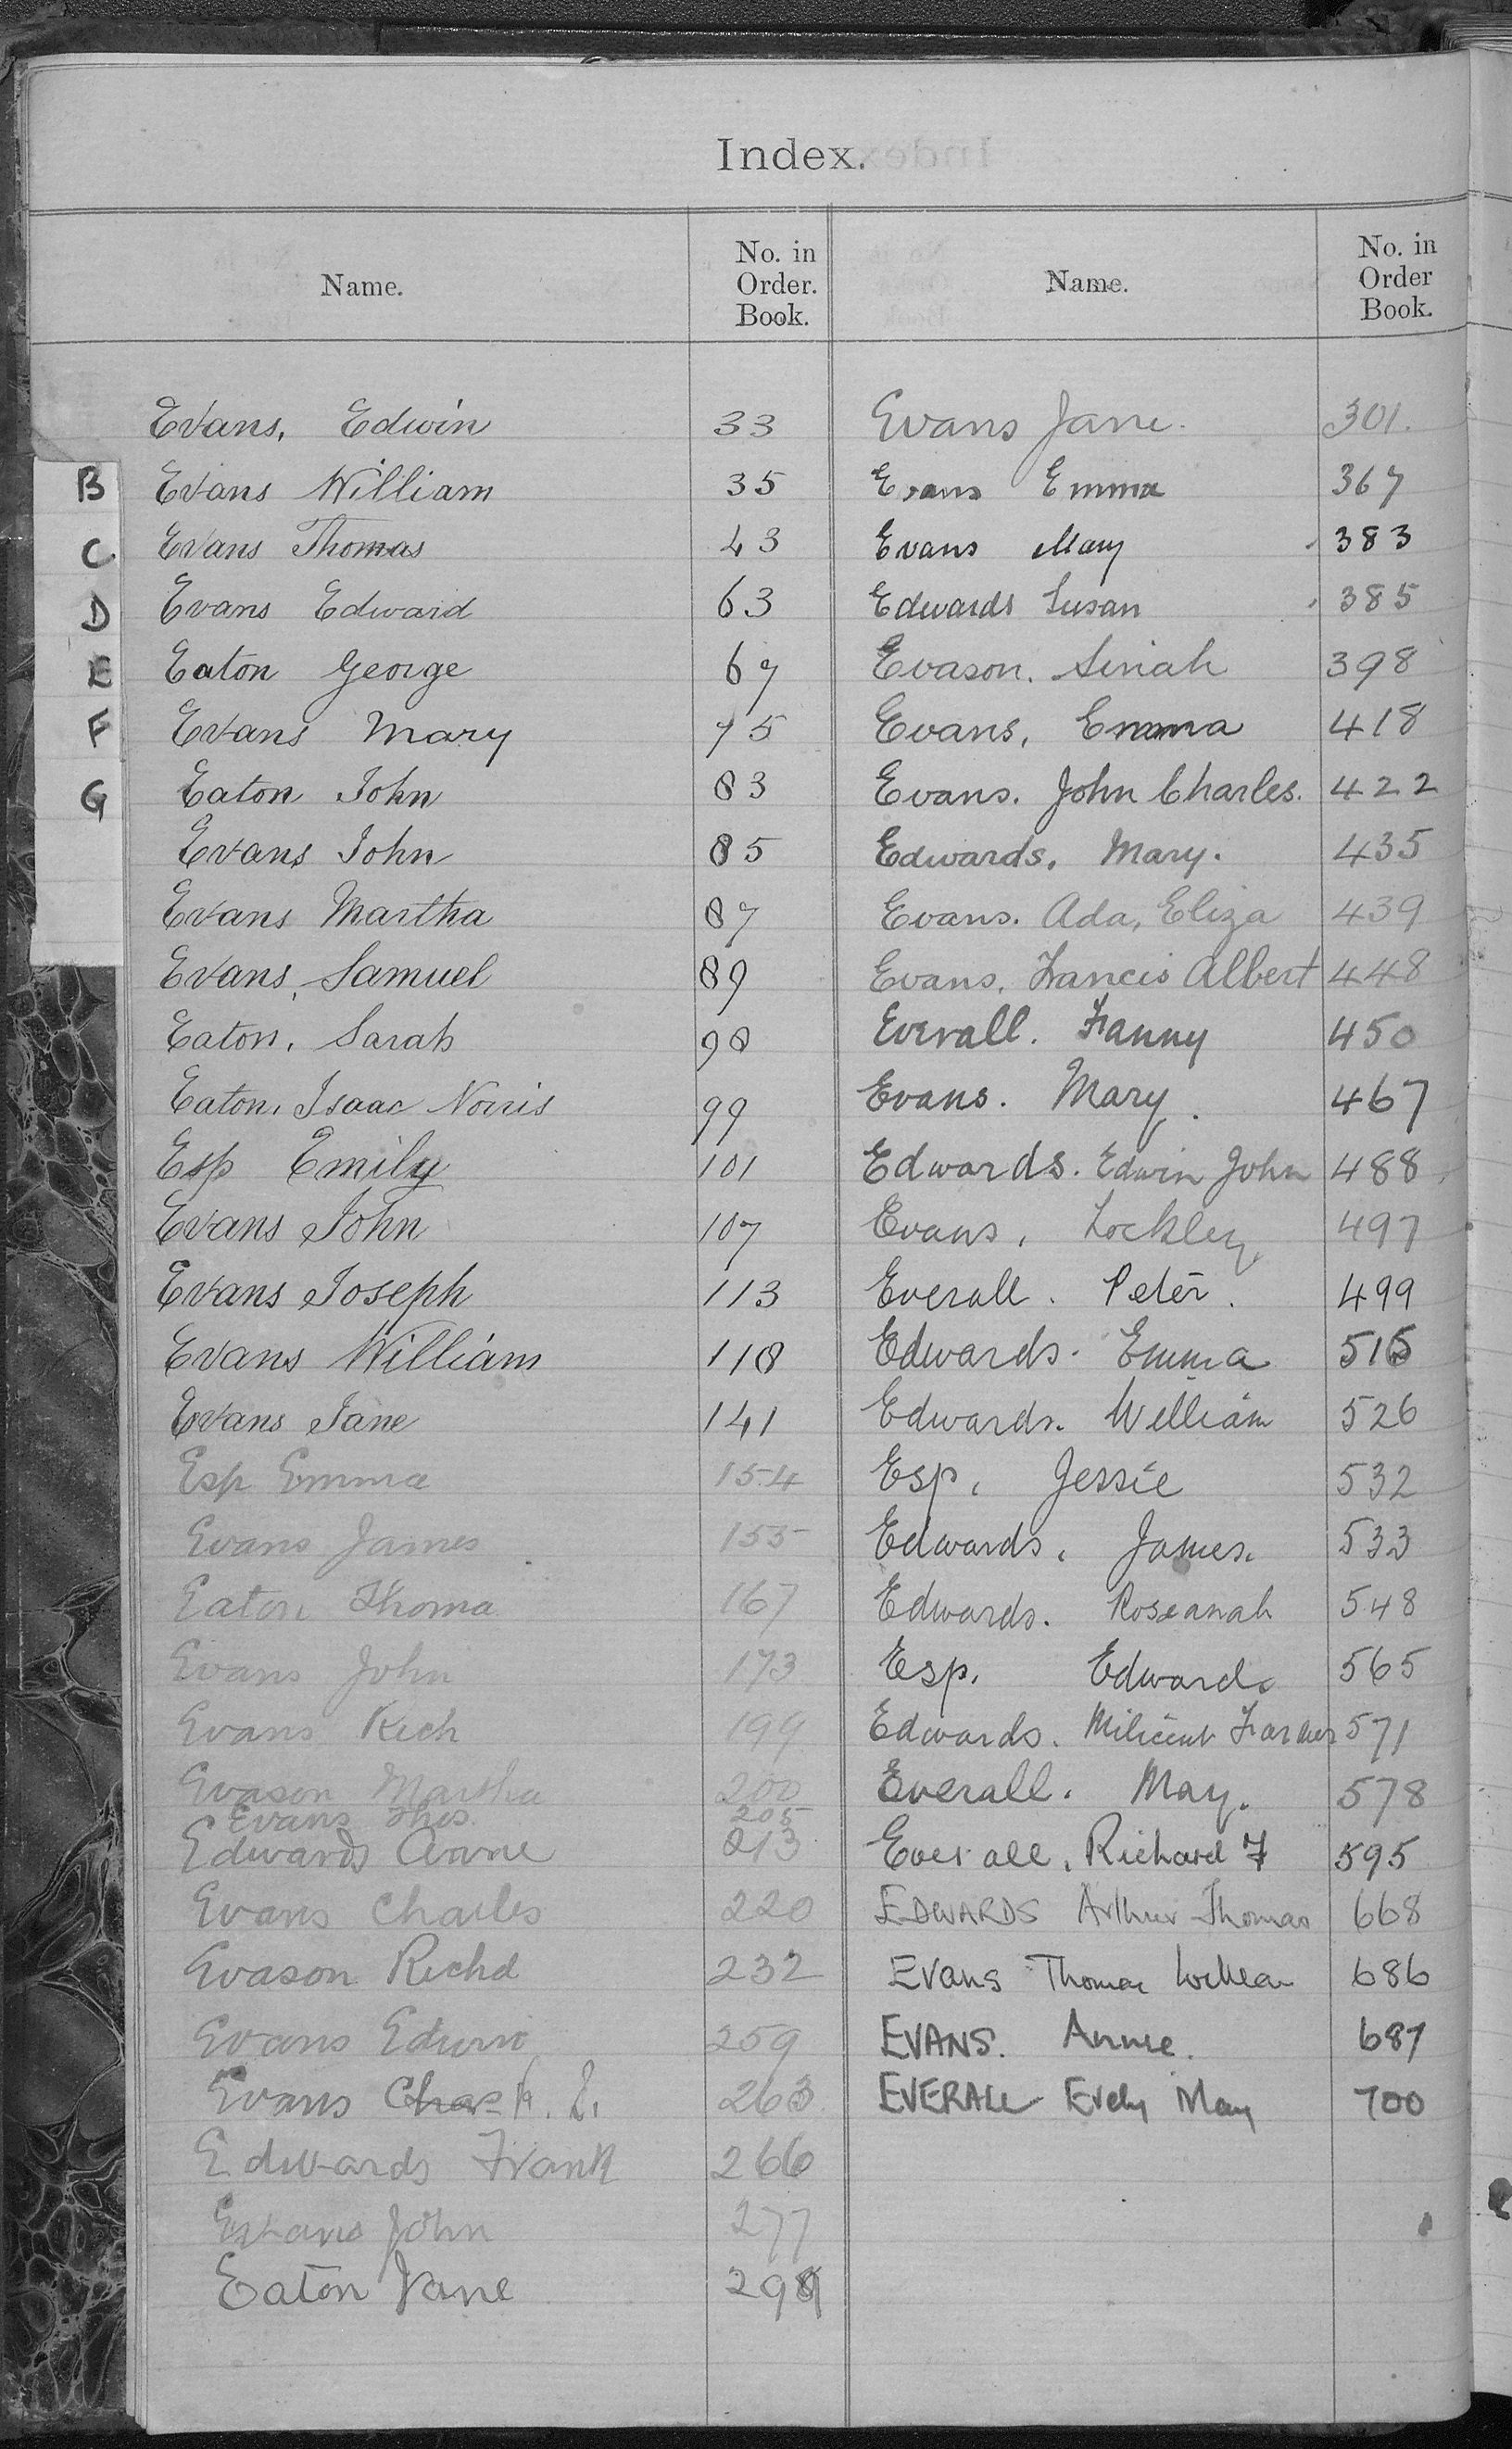 Index.
Name.
No. in
Order.
Book.
Name.
No. in
Order
Book.
B
C
D
E
F
G
Evans, Edwin 33
Evans William 35
Evans Thomas 43
Evans Edward 63
Eaton George 67
Evans Mary 75
Eaton John 83
Evans John 85
Evans Martha 87
Evans, Samuel 89
Eaton, Sarah 98
Eaton, Isaac Norris 99
Esp Emily 101
Evans John 107
Evans Joseph 113
Evans William 118
Evans Jane 141
Esp Emma 154
Evans James 155
Eaton Thoma 167
Evans John 173
Evans Rich 199
Evason Martha 200
Evans Thos 205
Edwards Anne 213
Evans Charles 220
Evason Richd 232
Evans Edwin 259
Evans 263
Edwards Frank 266
Evans John 277
Eaton Jane
Evans Jane. 301.
Evans Emma 367
Evans Mary 383
Edwards Susan 385
Evason. Seriah 398
Evans, Emma 418
Evans. John Charles. 422
Edwards, Mary. 435
Evans. Ada, Eliza 439
Evans, Francis Albert 448
Everall. Fanny 450
Evans. Mary. 467
Edwards. Edwin John 488
Evans, Lockley 497
Everall. Peter. 499
Edwards. Emma 515
Edwards. William 526
Esp, Jessie 532
Edwards, James. 533
Edwards. Roseanah 548
Esp. Edward 565
Edwards. Milicent Farmer 571
Everall. May. 578
Everall, Richard F 595
EDWARDS Arthur Thomas 668
Evans Thomas 686
EVANS. Annie. 687
EVERALL Evelyn May 700